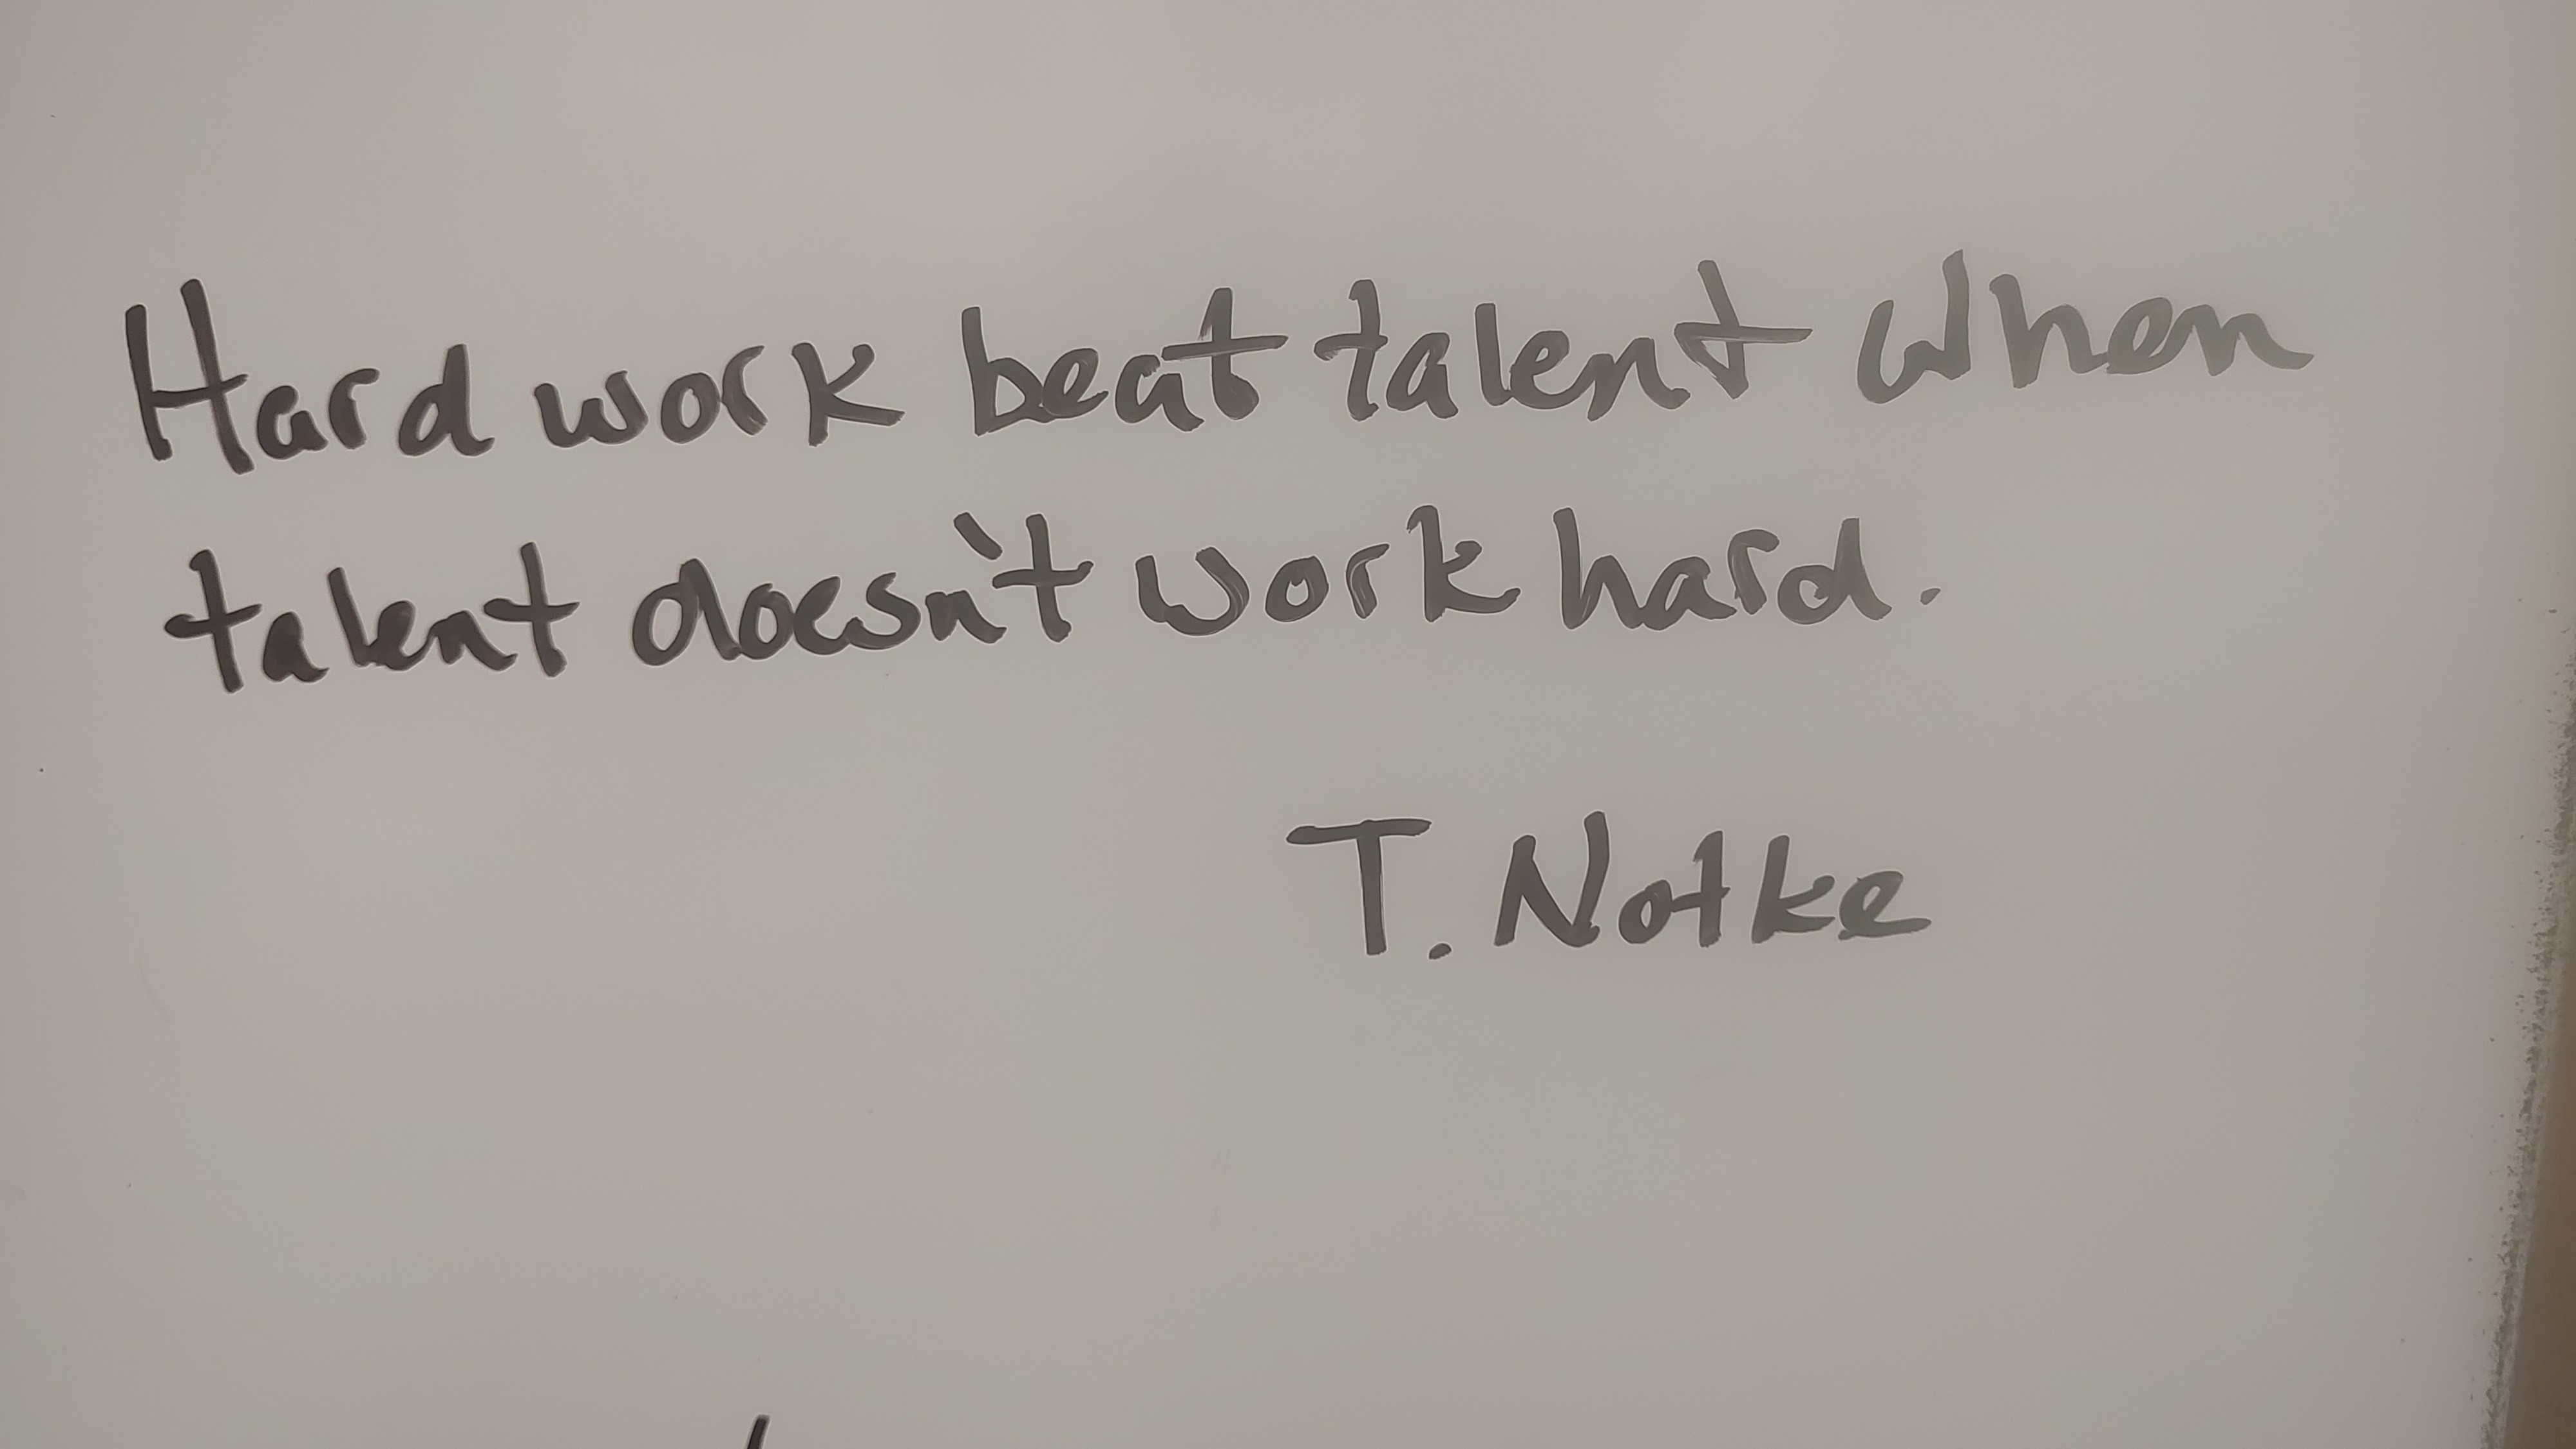 Hard work beat talent when
talent doesn't work hard.
T. Notke